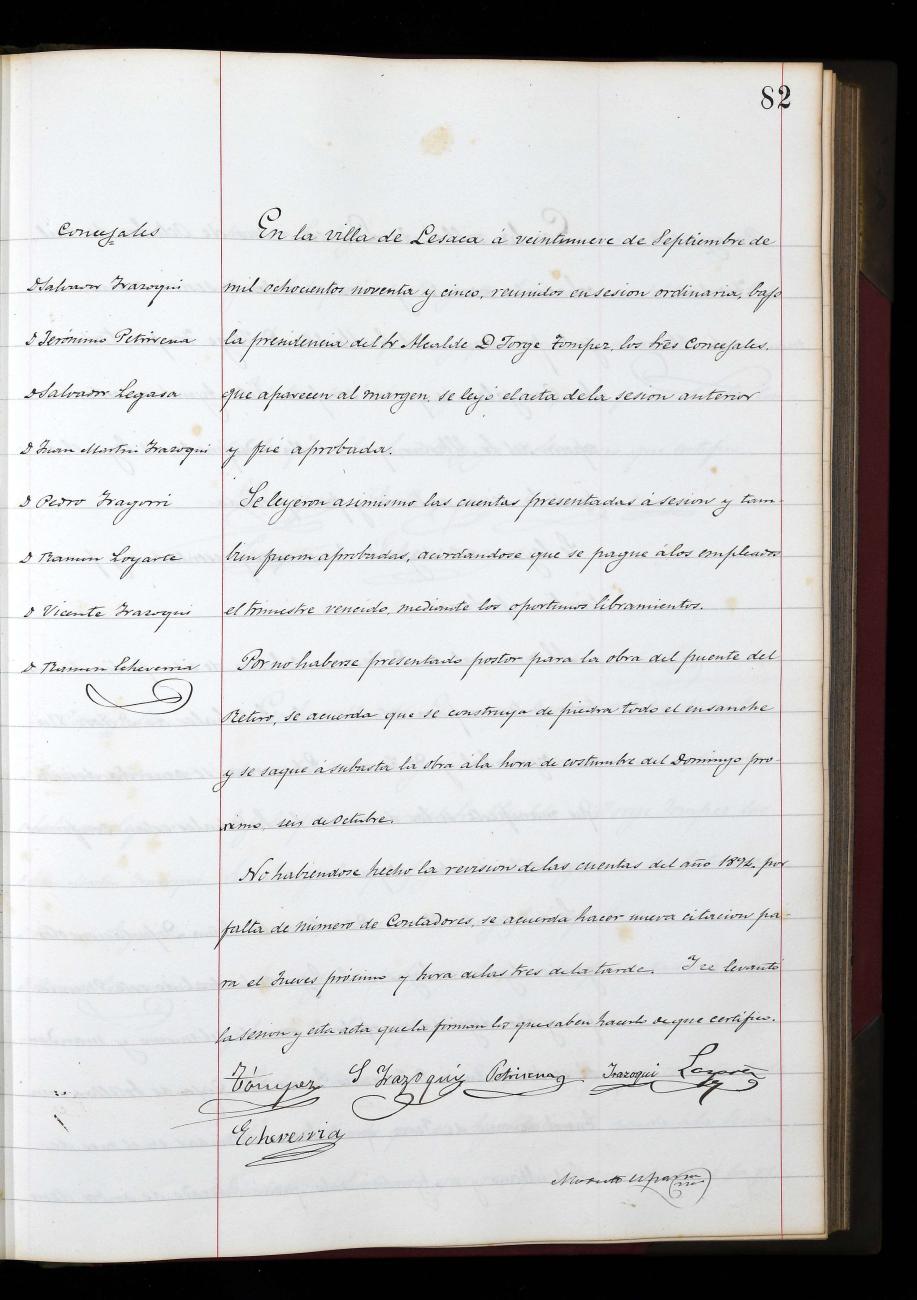 82
Concejales
D Salvador Irazoqui
D Jerónimo Petrirena
D Salvador Legasa
D Juan Martin Irazoqui
D Pedro Iragorri
D Ramon Loyarte
D Vicente Irazoqui
D Ramon Echeverria
En la villa de Lesaca á veintinueve de Septiembre de
mil ochocientos noventa y cinco, reunidos en sesion ordinaria, bajo
la presidencia del Sr Alcalde D Jorge Tompez, los tres Concejales,
que aparecen al margen, se leyó el acta de la sesion anterior
y fué aprobada.
Se leyeron asimismo las cuentas presentadas á sesion y tam-
bien fueron aprobadas, acordandose que se pague á los empleados
el trimestre vencido, mediante los oportunos libramientos.
Por no haberse presentado postor para la obra del puente del
Retiro, se acuerda que se construya de piedra todo el ensanche
y se saque á subasta la obra á la hora de costumbre del Domingo pro-
ximo, seis de Octubre.
No habiendose hecho la revision de las cuentas del año 1894, por
falta de número de Contadores, se acuerda hacer nueva citacion pa-
ra el Jueves próximo y hora de las tres de la tarde. Y se levantó
la sesion y esta acta que la firman los que saben hacerlo de que certifico.
Tómpez S Irazoqui Petrirena Irazoqui Legasa
Echeverria